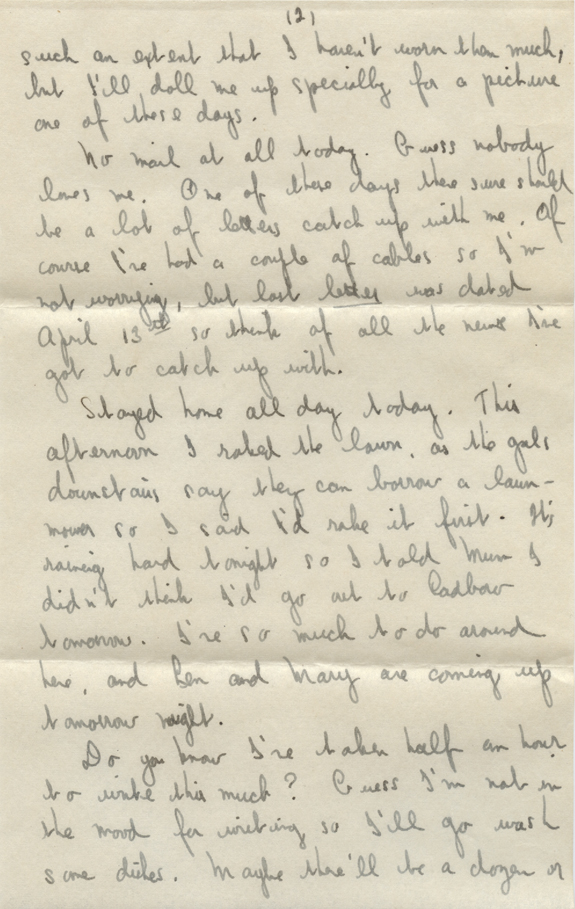 (2)
such an extent that I haven't worn them much,
but I'll doll me up specially for a picture
one of these days.
No mail at all today. Guess nobody
loves me. One of these days there sure should
be a lot of letters catch up with me. Of
course I've had a couple of cables so I'm
not worrying, but last letter was dated
April 13th so think of all the news I've
got to catch up with.
Stayed home all day today. This
afternoon I raked the lawn, as the gals
downstairs say they can borrow a lawn-
mower so I said I'd rake it first. It's
raining hard tonight so I told Mum I
didn't think I'd go out to
tomorrow. I've so much to do around
here, and Ben and Mary are coming up
tomorrow night.
Do you know I've taken half an hour
to write this much? Guess I'm not in
the mood for writing so I'll go wash
some dishes. Maybe there'll be a dozen or